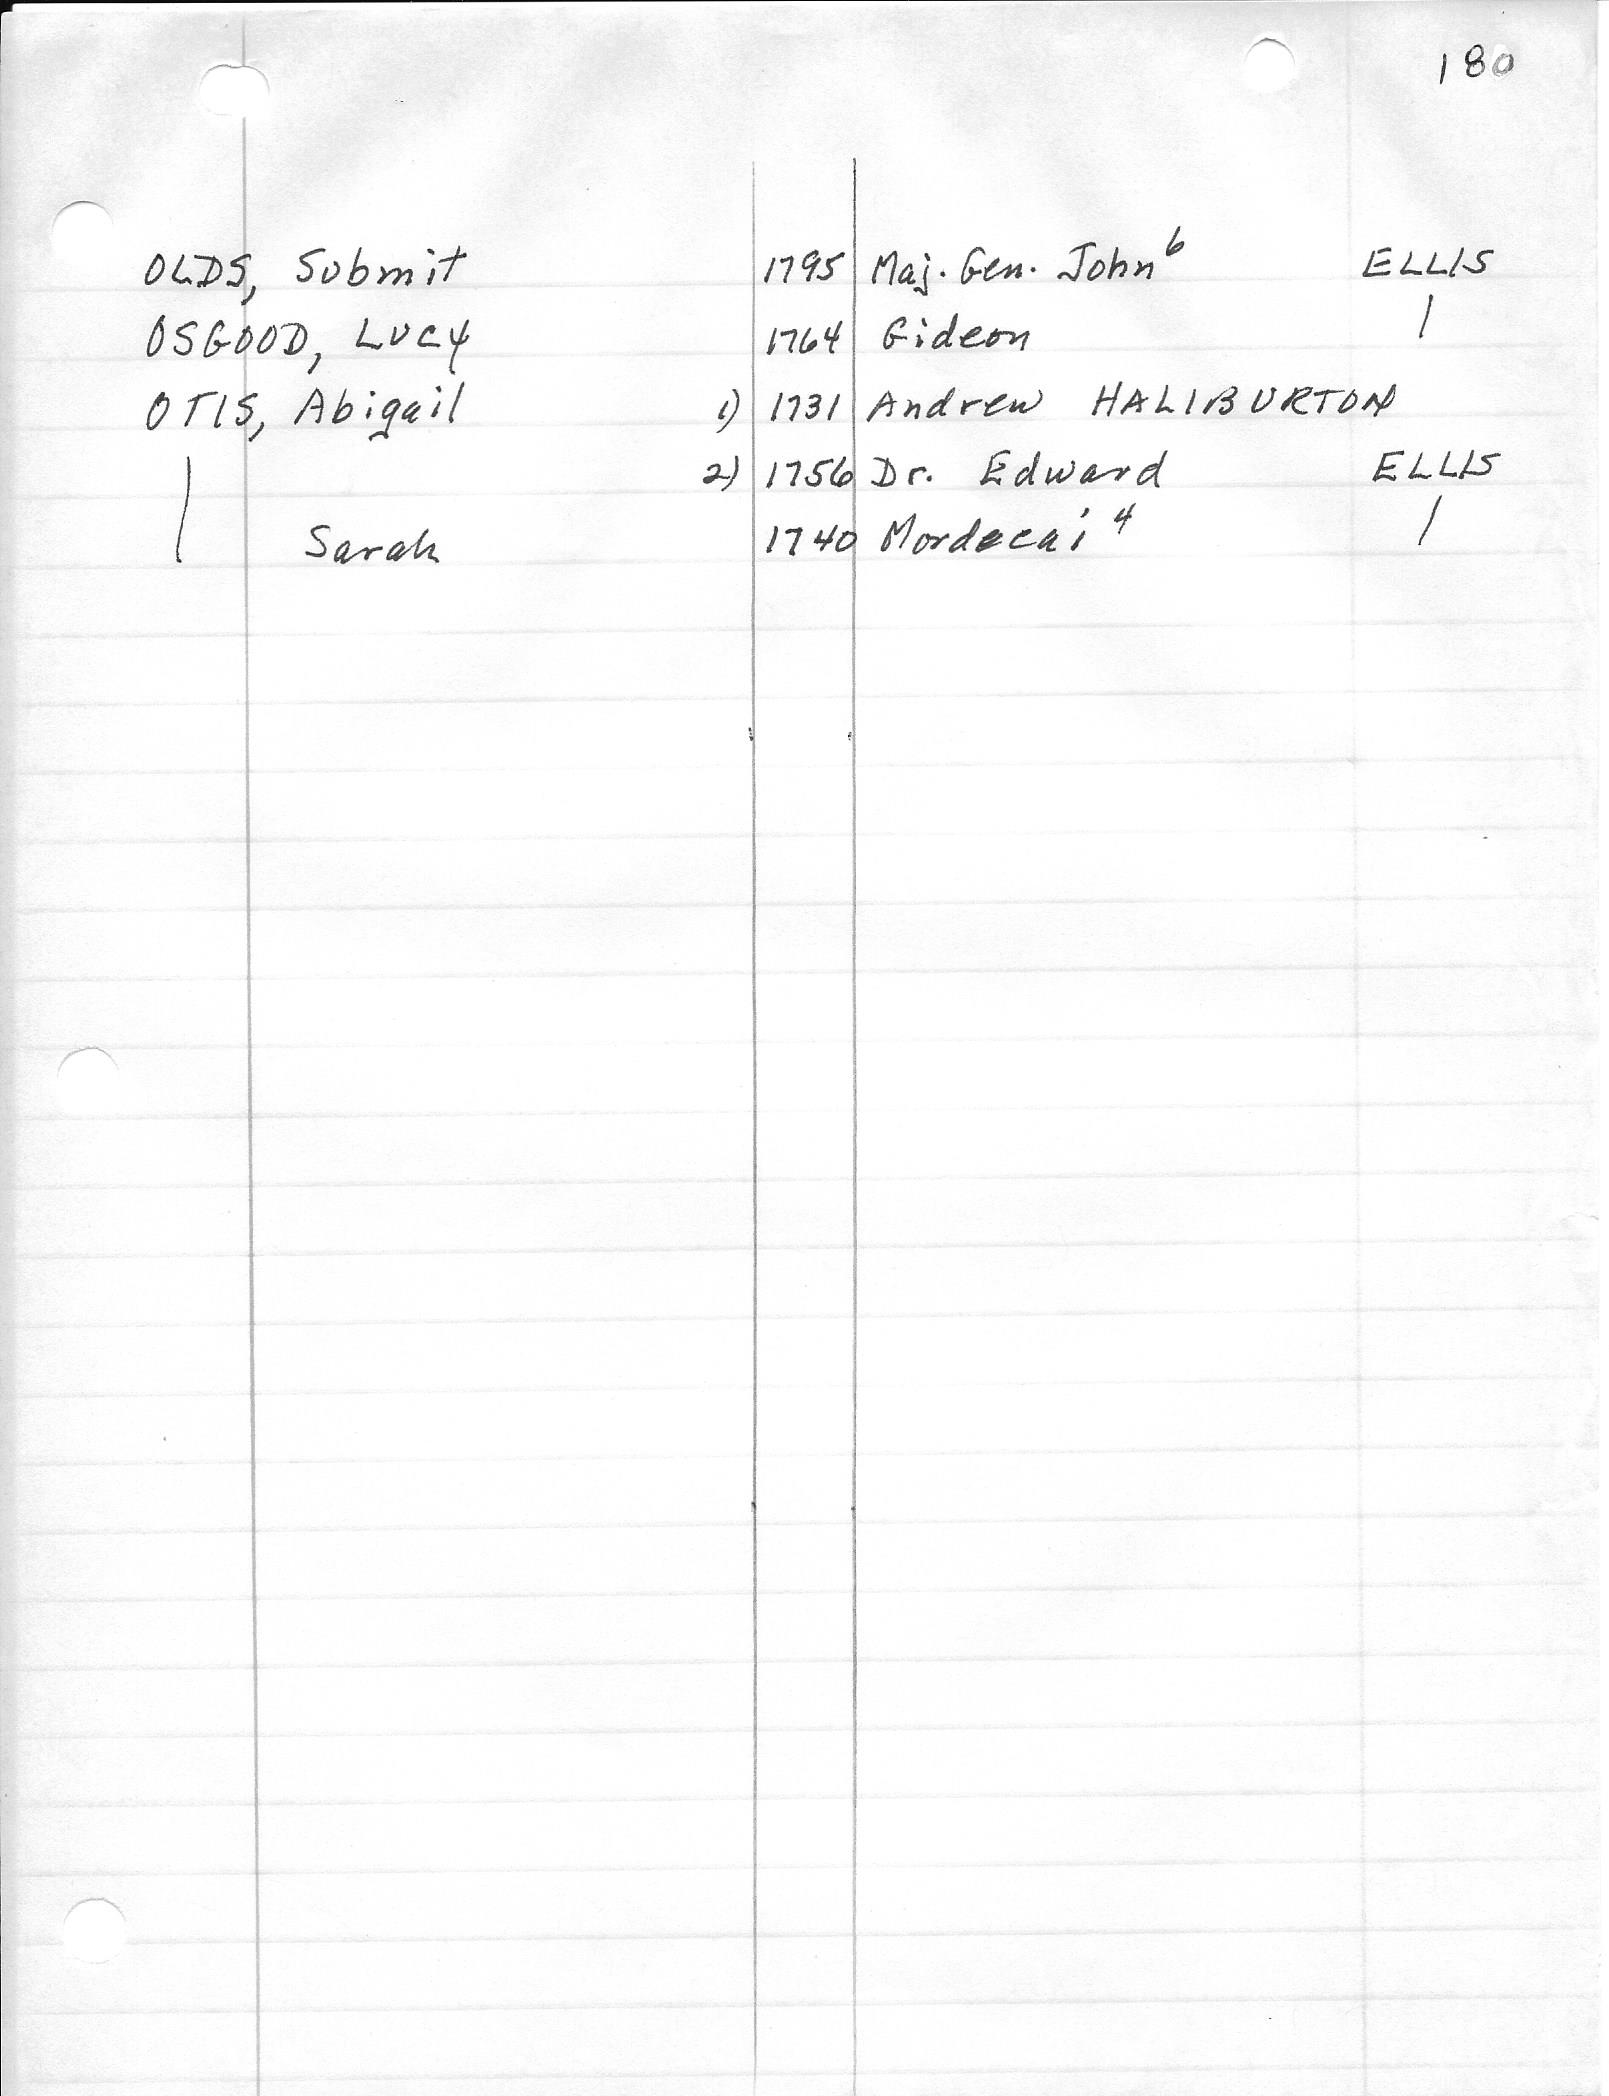 180
OLDS, Submit 1795 Maj. Gen. John⁶ ELLIS
OSGOOD, Lucy 1764 Gideon |
OTIS, Abigail 1) 1731 Andrew HALIBURTON
| 2) 1756 Dr. Edward ELLIS
| Sarah 1740 Mordecai⁴ |